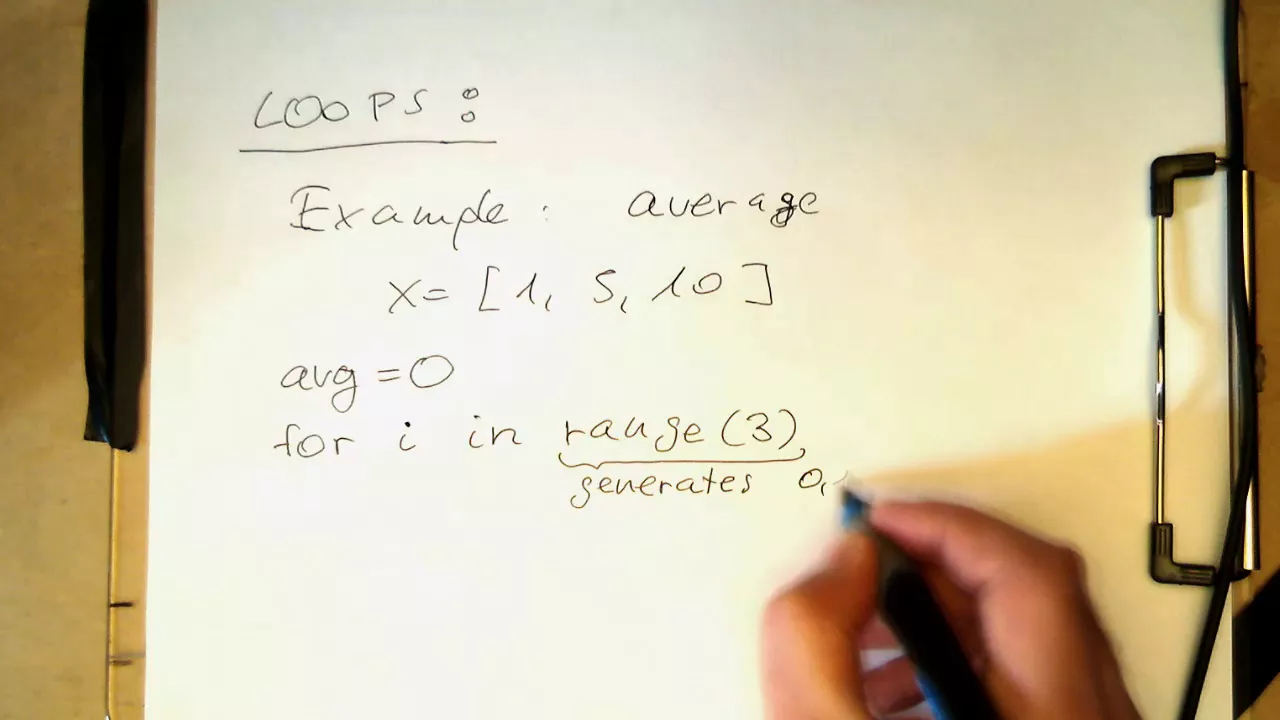 LOOPS:
Example: average
x= [1, 5, 10]
avg =0
for i in range(3)
generates 0,